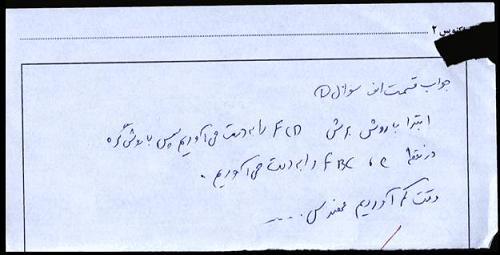 ۲
جواب قسمت الف سوال ①
ابتدا با روش برش FCD را به دست می آوریم سپس با روش گره
در نقطه C ، FBC را به دست می آوریم .
وقت کم آوردیم مهندس .....